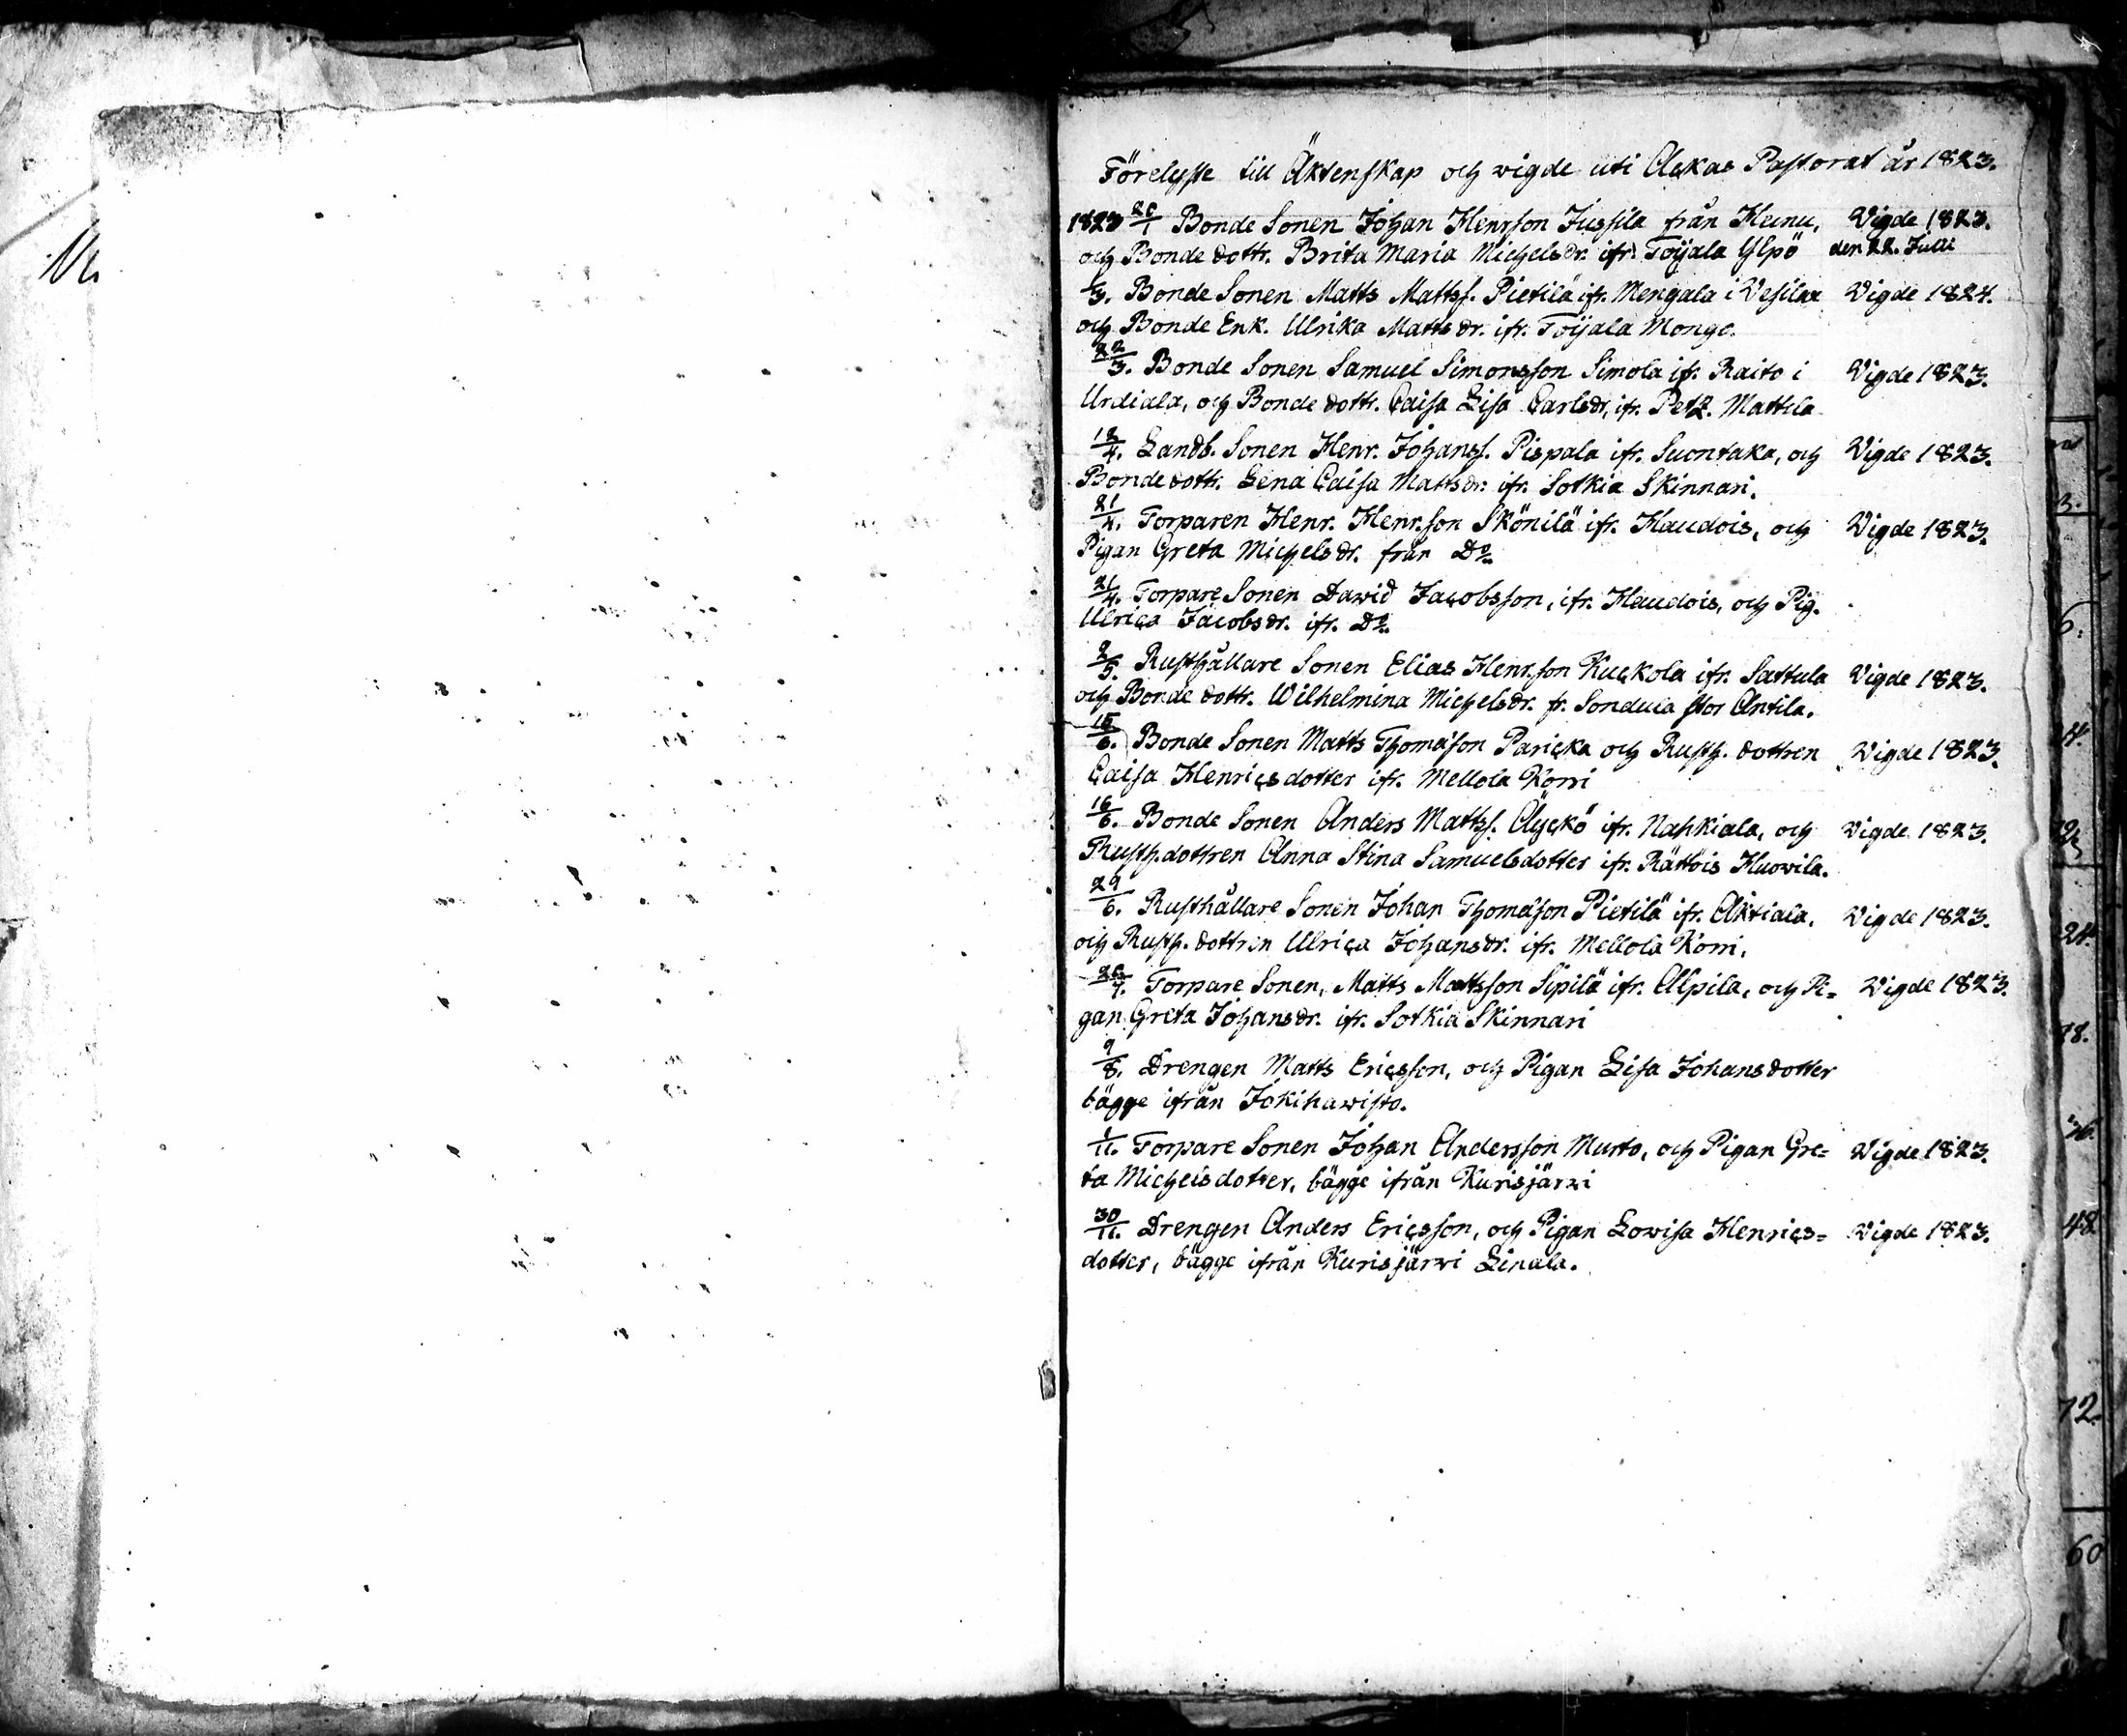 Förelyste till Äktenskap och vigde uti Ackas Pastorat år 1823.
1823 20/1 Bonde Sonen Johan Henrson Jussila från Heinu, Vigde 1823.
och Bonde dottr. Brita Maria Michelsdr. ifr. Toijala Ylpö den 22. Julii
/3. Bonde Sonen Matts Mattss. Pietilä ifr. Mengala i Vesilax Vigde 1824.
och Bonde Enk. Ulrika Mattsdr. ifr. Toijala Monge.
22/3. Bonde Sonen Samuel Simonsson Simola ifr. Raito i Vigde 1823.
Urdiala, och Bonde dottr. Caisa Lisa Carlsdr. ifr. Mattila
12/4. Landb. Sonen Henr. Johanss. Pispala ifr. Suontaka, och Vigde 1823.
Bonde dottr. Lena Caisa Mattsdr. ifr. Sotkia Skinnari.
21/4. Torparen Henr. Henr.son Skönilä ifr. Haudois, och Vigde 1823.
Pigan Greta Michelsdr. från Do
21/4. Torpare Sonen Dawid Jacobsson, ifr. Haudois, och Pig.
Ulrica Jacobsdr. ifr. Do
2/5. Rusthållare Sonen Elias Henr.son Kuckola ifr. Sattula Vigde 1823.
och Bonde dottr. Wilhelmina Michelsdr. fr. Sondula stor Antila.
15/6. Bonde Sonen Matts Thomasson Paricka och Rusth. dottren Vigde 1823.
Caisa Henricsdotter ifr. Mellola Korri
16/6. Bonde Sonen Anders Mattss. Äyckö ifr. Nahkiala, och Vigde 1823.
Rusth.dottren Anna Stina Samuelsdotter ifr. Rättöis Huowila.
29/6. Rusthållare Sonen Johan Thomasson Pietilä ifr. Äktiala, Vigde 1823.
och Rusth. dottren Ulrica Johansdr. ifr. Mellola Korri.
20/7. Torpare Sonen, Matts Mattsson Sipilä ifr. Alpila, och Pi= Vigde 1823.
gan Greta Johansdr. ifr. Sotkia Skinnari
9/8. Drengen Matts Ericsson, och Pigan Lisa Johansdotter
bägge ifrån Jokihawisto.
1/11. Torpare Sonen Johan Andersson Murto, och Pigan Gre= Vigde 1823.
ta Michelsdotter, bägge ifrån Kurisjärvi
30/11. Drengen Anders Ericsson, och Pigan Lowisa Henrics= Vigde 1823.
dotter, bägge ifrån Kurisjärwi Linala.
3.
6.
24.
48
72.
60